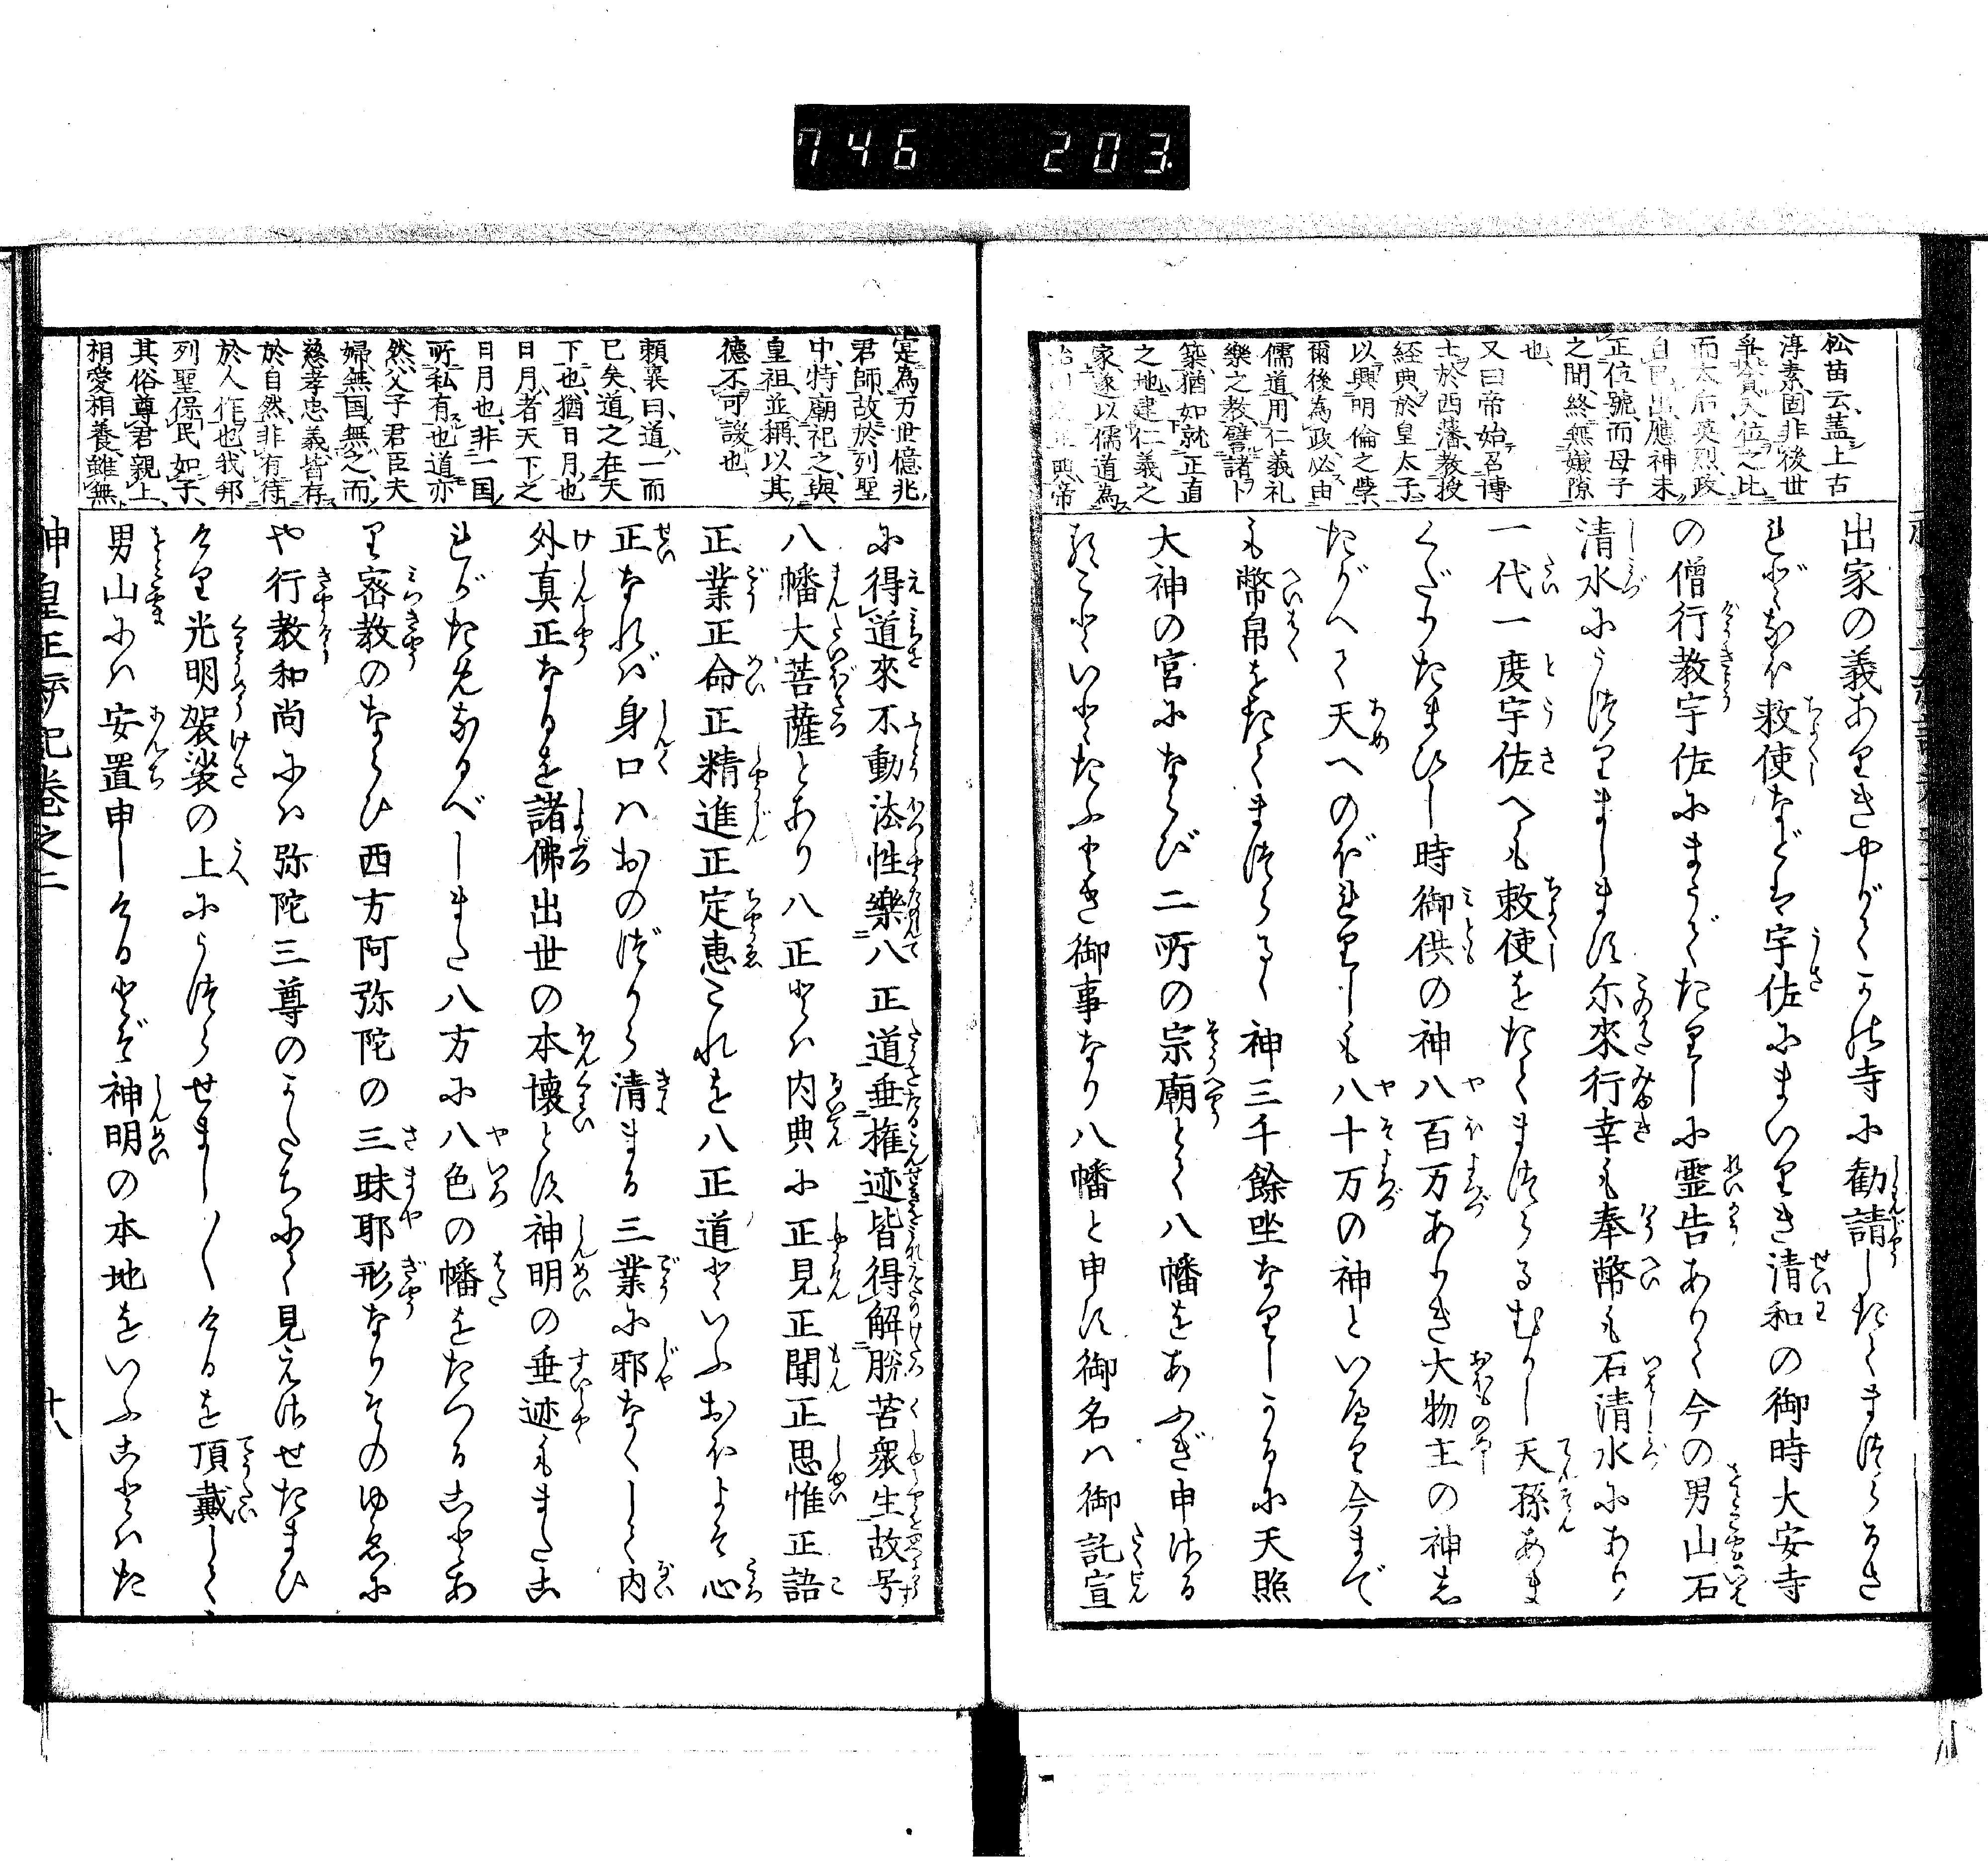 746 203
松苗云蓋上古
淳素固非後世
爭貪天位之比
而太后英烈政
自己出應神未
正位號而母子
之間終無嫌隙
也
又曰帝始召博
士於西藩教授
経典於皇太子
以興明倫之學
爾後為政必由
儒道用仁義礼
樂之教譬諸卜
築猶如就正直
之地建仁義之
家遂以儒道為
出家の義ありきやがてかの寺に勧請したてまつらるさ
れどもなほ勅使などは宇佐にまいりき清和の御時大安寺
の僧行教宇佐にまうでたりしに霊告ありて今の男山石
清水にうつりまします尓來行幸も奉幣も石清水にあり
一代一度宇佐へも敕使をたてまつらるむかし天孫あま
くだりたまひし時御供の神八百万ありき大物主の神し
たがへて天へのぼれりしも八十万の神といへり今まで
も幣帛をたてまつらるゝ神三千餘坐なりしかるに天照
大神の宮にならび二所の宗廟とて八幡をあふぎ申さる
ることいとたふとき御事なり八幡と申す御名は御託宣
定為万世億兆
君師故於列聖
中特廟祀之與
皇祖並稱以其
德不可諼也
頼襄曰道一而
已矣道之在天
下也猶日月也
日月者天下之
日月也非一国
所私有也道亦
然父子君臣夫
婦無国無之而
慈孝忠義皆存
於自然非有待
於人作也我邦
列聖保民如子
其俗尊君親上
相愛相養雖無
に得道來不動法性樂八正道垂権迹皆得解脱苦衆生故号
八幡大菩薩とあり八正とは内典に正見正聞正思惟正語
正業正命正精進正定恵これを八正道といふおほよそ心
正なれば身口はおのづから清まる三業に邪なくして内
外真正なるを諸佛出世の本懐とす神明の垂迹もまたこ
れがためなるべしまた八方に八色の幡をたつることあ
り密教のならひ西方阿弥陀の三昧耶形なりそのゆゑに
や行教和尚には弥陀三尊のかたちにて見えさせたまひ
けり光明袈裟の上にうつらせまし〳〵けるを頂戴して
男山には安置申しけるとぞ神明の本地をいふことはた
神皇正統記巻之二
十八